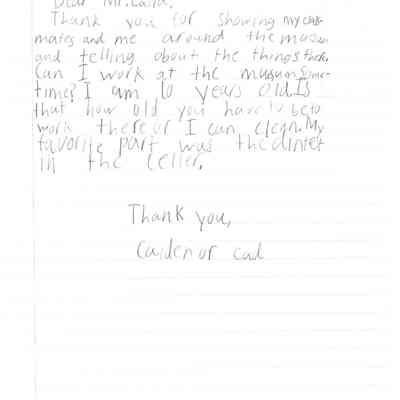 Dear Mr.
Thank you for showing my clas-
mates and me around the museum
and telling about the things there.
Can I work at the museum some-
time? I am 10 years old. Is
that how old you have to be to
work there or I can clean. My
favorite part was the
in the celler.
Thank you,
Caiden or cad